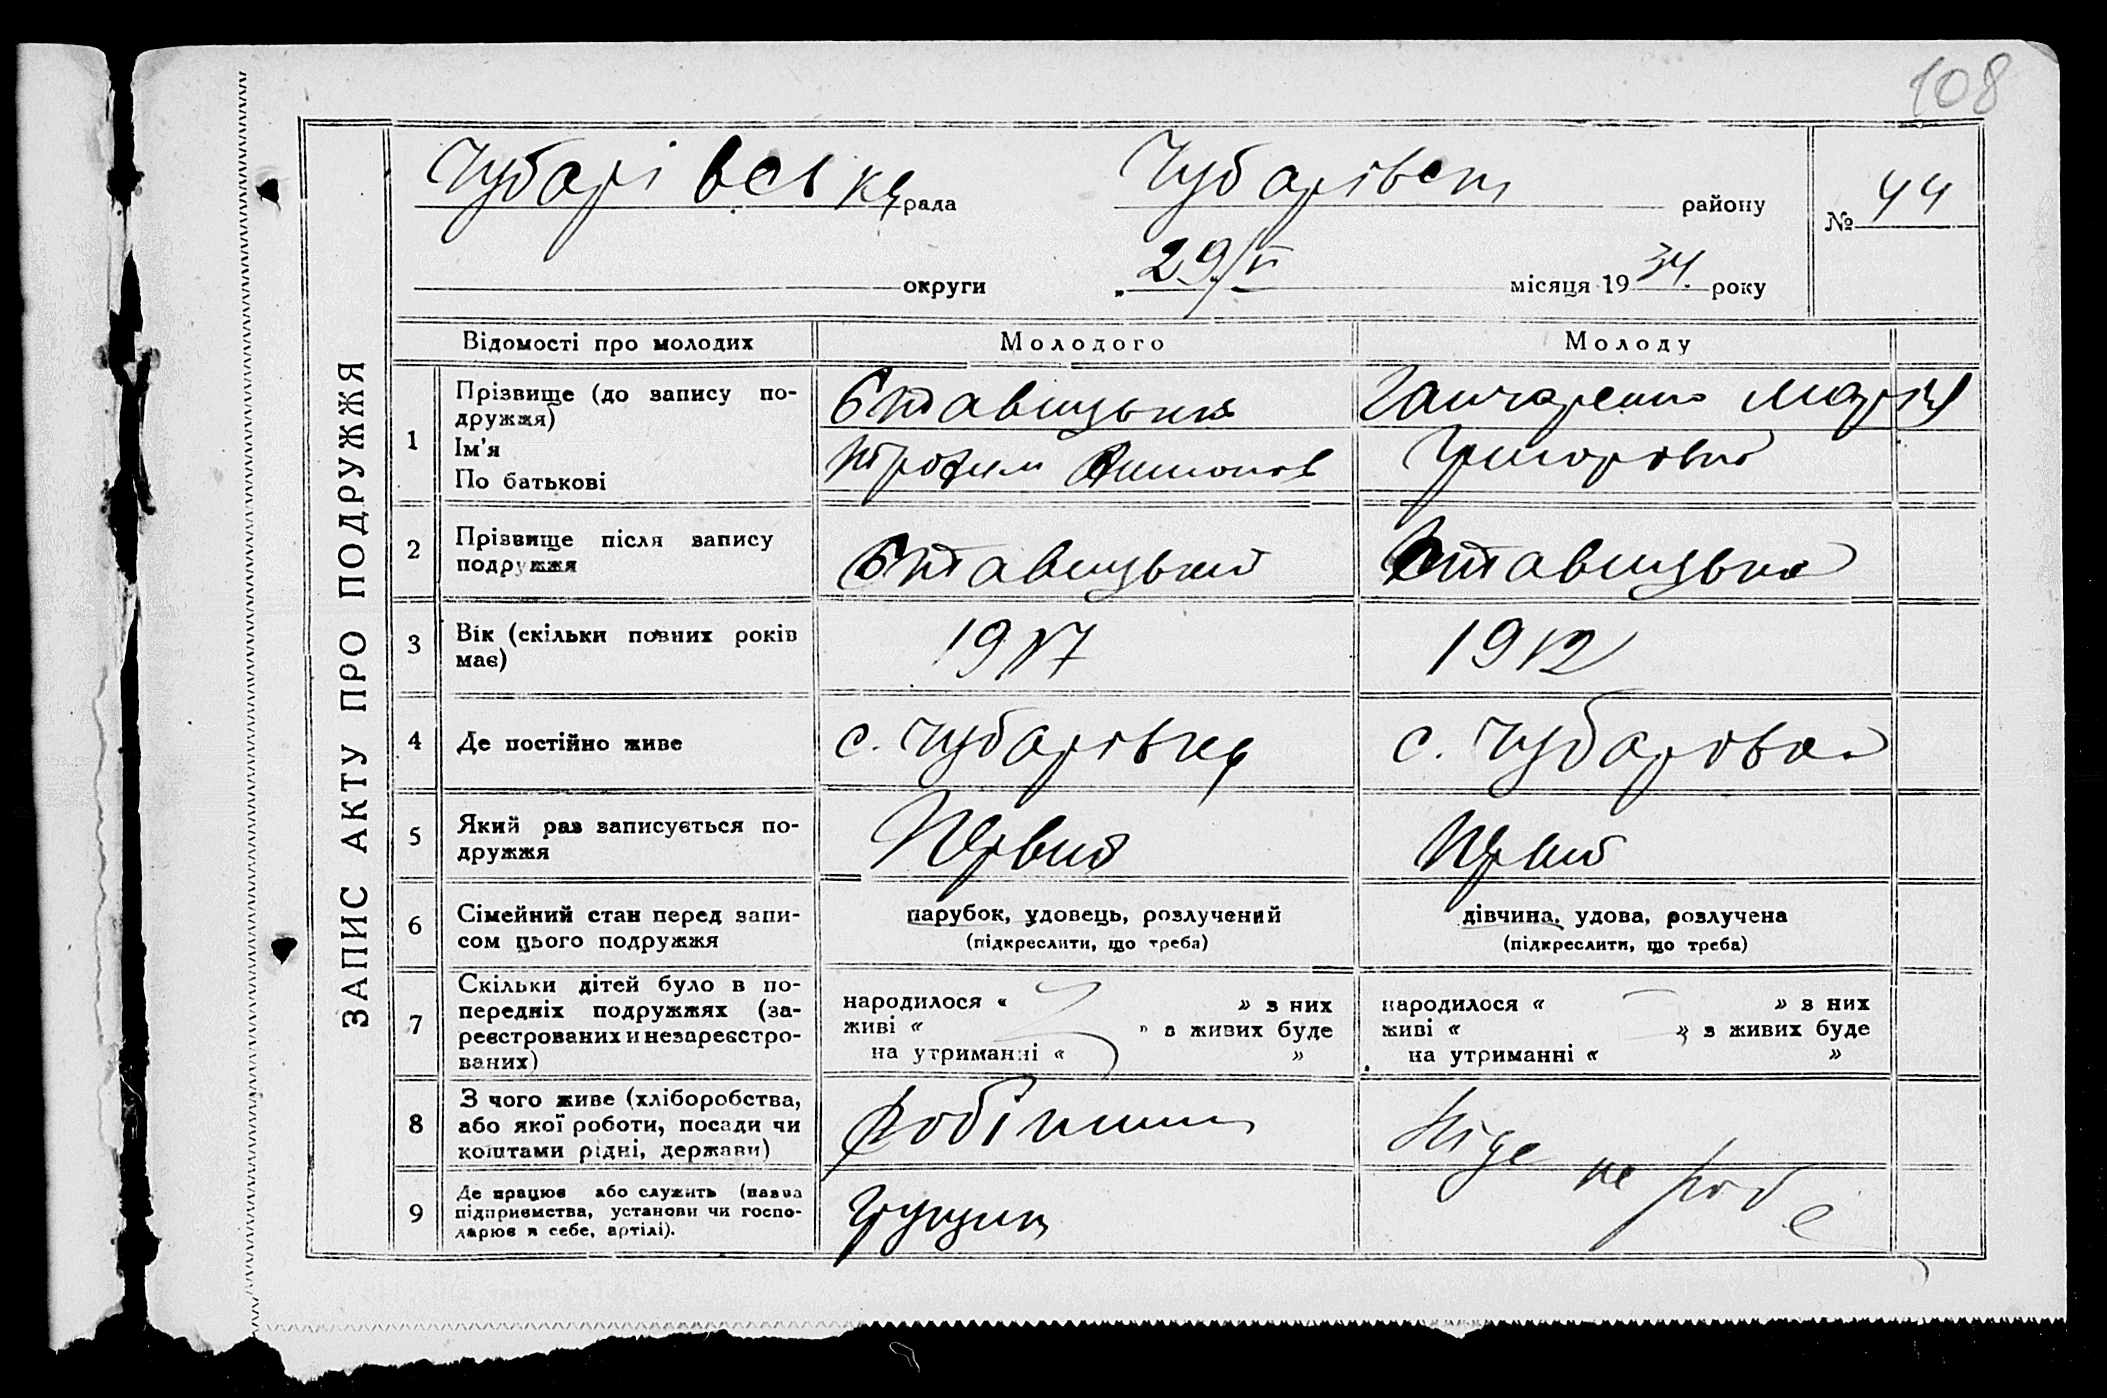 108
ЗАПИС АКТУ ПРО ПОДРУЖЖЯ
Чубарівська рада Чубарівськ району № 44
округи „29/VI місяця 1934 року
Відомості про молодих Молодого Молоду
1 Прізвище (до запису по-
дружжя)
Ім'я
По батькові
Ставицький
Трофим Антонов
Ганчаренко Марія
Григоровна
2 Прізвище після запису
подружжя
Ставицький
Ставицька
3 Вік (скільки повних років
має)
1917
1912
4 Де постійно живе
с. Чубарівка
с. Чубаровка
5 Який раз записується по-
дружжя
Первий
Первий
6 Сімейний стан перед запи-
сом цього подружжя
парубок, удовець, розлучений
(підкреслити, що треба)
дівчина, удова, розлучена
(підкреслити, що треба)
7 Скільки дітей було в по-
передніх подружжях (за-
реєстрованих и незареєстро-
ваних)
народилося « » з них
живі « » з живих буде
на утриманні « »
народилося « » з них
живі « » з живих буде
на утриманні « »
8 З чого живе (хліборобства,
або якої роботи, посади чи
коштами рідні, держави)
Робітник
Ніде не робе
9 Де працює або служить (назва
підприємства, установи чи госпо-
дарює в себе, артілі).